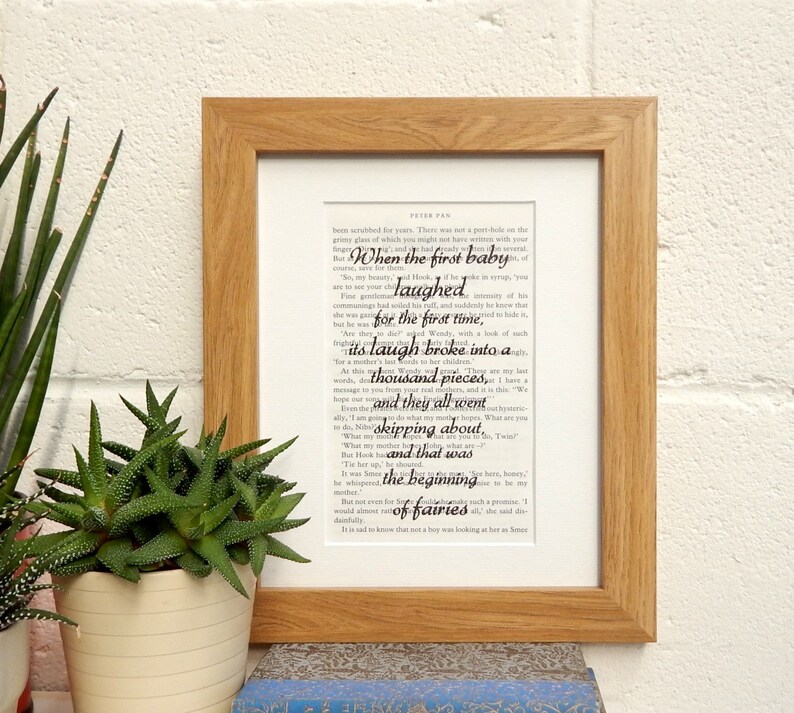 PETER PAN
When the first baby
laughed
for the first time,
its laugh broke into a
thousand pieces,
and they all went
skipping about,
and that was
the beginning
of fairies
been scrubbed for years. There was not a port-hole on the
grimy glass of which you might not have written with your
finger and she had already written it on several.
But as of
course, save for them.
'So, my beauty,' said Hook, as if he spoke in syrup, 'you
are to see your children
Fine gentleman the intensity of his
communings had soiled his ruff, and suddenly he knew that
she was gazing at it. With a hasty gesture he tried to hide it,
but he was too late.
'Are they to die?' asked Wendy, with a look of such
frightful contempt that he nearly fainted.
'for a mother's last words to her children.'
At this moment Wendy was grand. 'These are my last
words, dear that I have a
message to you from your real mothers, and it is this: "We
hope our sons will
Even the pirates were awed, and Tootles cried out hysteric-
ally, 'I am going to do what my mother hopes. What are you
to do, Nibs?'
'What my mother hopes. What are you to do, Twin?'
'What my mother hopes. John, what are –?'
But Hook had
'Tie her up,' he shouted.
It was Smee who tied her to the mast. 'See here, honey,'
he whispered, promise to be my
mother.'
But not even for Smee would she make such a promise. 'I
would almost all,' she said dis-
dainfully.
It is sad to know that not a boy was looking at her as Smee